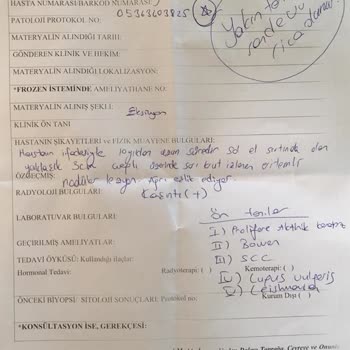 HASTA NUMARASI/BARKOD NUMARASI:
05363603825
PATOLOJİ PROTOKOL NO:
Yakın
MATERYALİN ALINDIĞI TARİHİ:
rica
GÖNDEREN KLİNİK VE HEKİM:
MATERYALİN ALINDIĞI LOKALİZASYON:
*FROZEN İSTEMİNDE AMELİYATHANE NO:
MATERYALİN ALINIŞ ŞEKLİ: Eksizyon
KLİNİK ÖN TANI
HASTANIN ŞİKAYETLERİ ve FİZİK MUAYENE BULGULARI:
Hastanın ifadesiyle uzun süredir sol el sırtında
yaklaşık 3cm sarı but izlenen eritemli
ÖZGEÇMİŞ:
nodüler lezyon. Ağrı eşlik ediyor.
RADYOLOJİ BULGULARI: Kaşıntı (+)
LABORATUVAR BULGULARI: Ön tanılar
I) Prolifere Aktinik keratoz
GEÇİRİLMİŞ AMELİYATLAR:
II) Bowen
TEDAVİ ÖYKÜSÜ: Kullandığı ilaçlar: III) SCC
Hormonal Tedavi: Radyoterapi: ( ) Kemoterapi: ( )
IV) Lupus vulgaris
V) Leishmania
ÖNCEKİ BİYOPSİ SİTOLOJİ SONUÇLARI: Protokol no: Kurum Dışı ( )
*KONSÜLTASYON İSE, GEREKÇESİ: